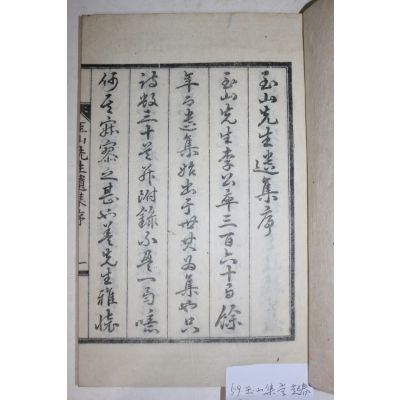 玉山先生遺集序
玉山先生李公卒三百六十有餘
年而遺集始出于世其為集也只
詩數三十首并附錄不盈一局噫
何其寂寥之甚也蓋先生雅懷
玉山先生遺集序 一
59 玉山集